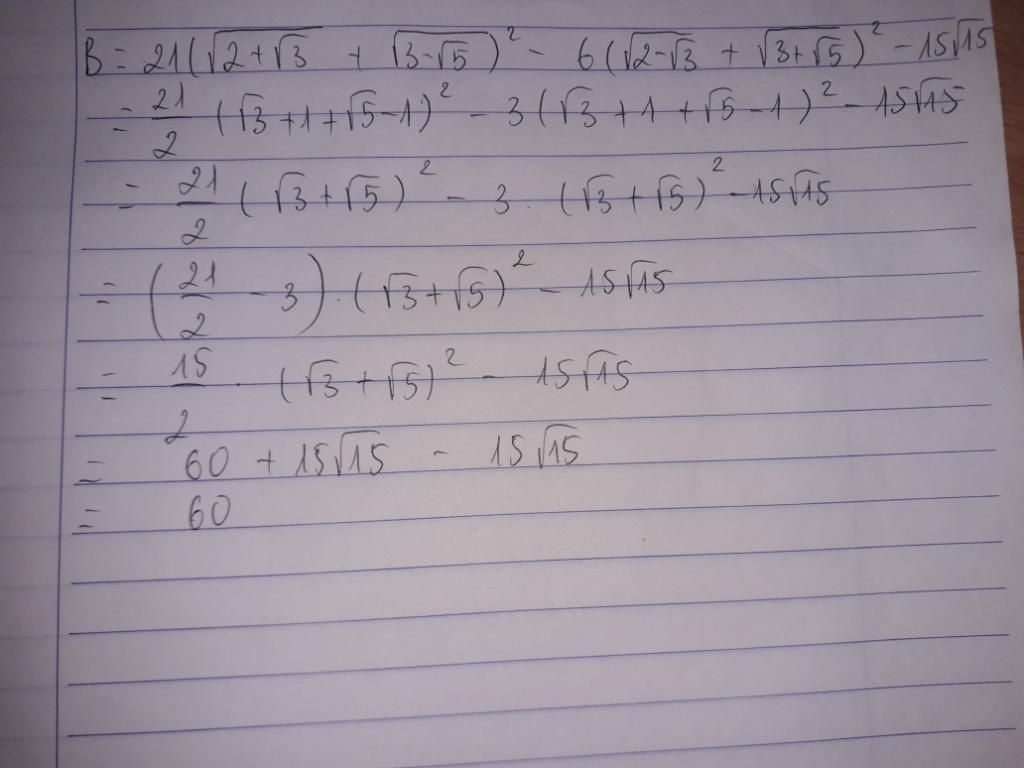 B = 21(√2+√3 + √3-√5)² - 6(√2-√3 + √3+√5)² - 15√15
= 21/2 (√3+1+√5-1)² - 3(√3+1+√5-1)² - 15√15
= 21/2 (√3+√5)² - 3.(√3+√5)² - 15√15
= (21/2 - 3).(√3+√5)² - 15√15
= 15/2 . (√3+√5)² - 15√15
= 60 + 15√15 - 15√15
= 60